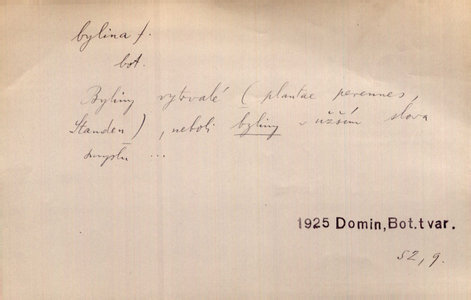 bylina f.
bot.
Byliny vytrvalé (plantae perennes,
Stauden), neboli byliny v užším slova
smyslu ...
1925 Domin, Bot.tvar.
52, 9.